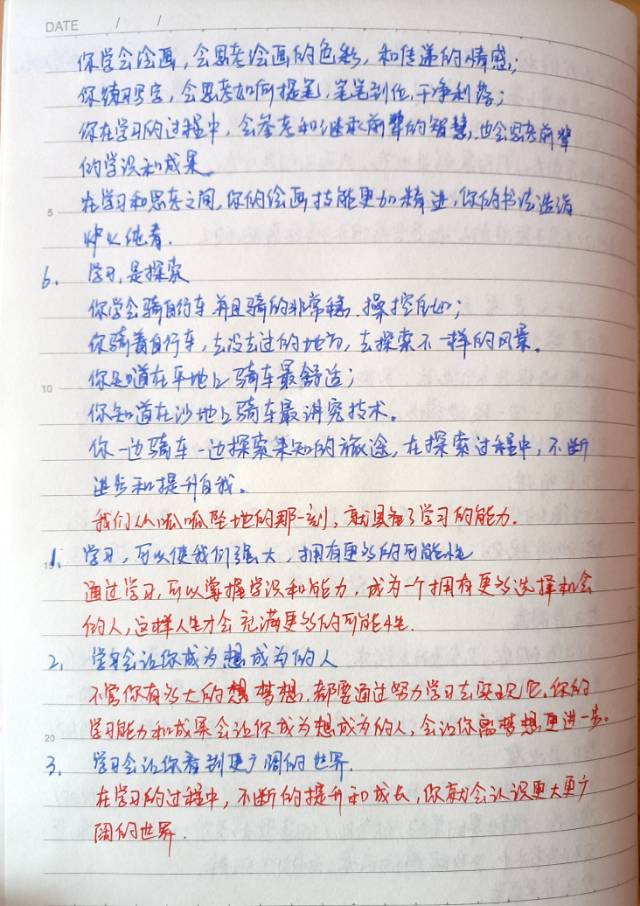 DATE / /
你学会绘画，会思考绘画的色彩，和传递的情感；
你练习写字，会思考如何提笔，笔笔到位，干净利落；
你在学习的过程中，会参考和继承前辈的智慧，也会思考前辈
的学识和成果。
在学习和思考之间，你的绘画技能更加精进，你的书法造诣
炉火纯青．
6. 学习，是探索
你学会骑自行车并且骑的非常稳，操控自如；
你骑着自行车，去没去过的地方，去探索不一样的风景。
你知道在平地上骑车最舒适；
你知道在沙地上骑车最讲究技术。
你一边骑车一边探索未知的旅途，在探索过程中，不断
进步和提升自我。
我们从呱呱坠地的那一刻，就具备了学习的能力．
1. 学习，可以使我们强大，拥有更多的可能性
通过学习，可以掌握学识和能力，成为一个拥有更多选择机会
的人，这样人生才会充满更多的可能性．
2. 学习会让你成为想成为的人
不管你有多大的想梦想，都要通过努力学习去实现它，你的
学习能力和成果会让你成为想成为的人，会让你离梦想更进一步。
3. 学习会让你看到更广阔的世界．
在学习的过程中，不断的提升和成长，你就会认识更大更广
阔的世界．
5
10
20